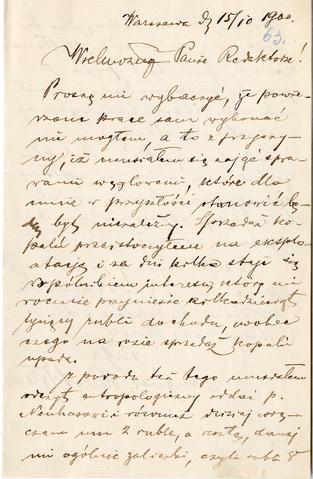 Warszawa d. 15/10 1900.
63.
Wielmożny Panie Redaktorze!
Proszę mi wybaczyć, że powie-
rzone prace sam wykonać
nie mogłem, a to z przyczy-
ny, iż musiałem się zająć spra-
wami węglowemi, które dla
mnie w przyszłości stanowić bę-
dą byt niezależny. Sprzedaż ko-
palni przeistoczyłem na eksplo-
atację i za dni kilka staję się
wspólnikiem interesu, który mi
rocznie przyniesie kilkadziesiąt
tysięcy rubli dochodu, wobec
czego na razie sprzedaż kopalni
upada.
Z powodu też tego musiałem
odczyt antropologiczny oddać p.
Neuhasowi również dzisiaj wrę-
czam mu 2 ruble, a resztę, danej
mi ogólnie zaliczki, czyli rubli 8